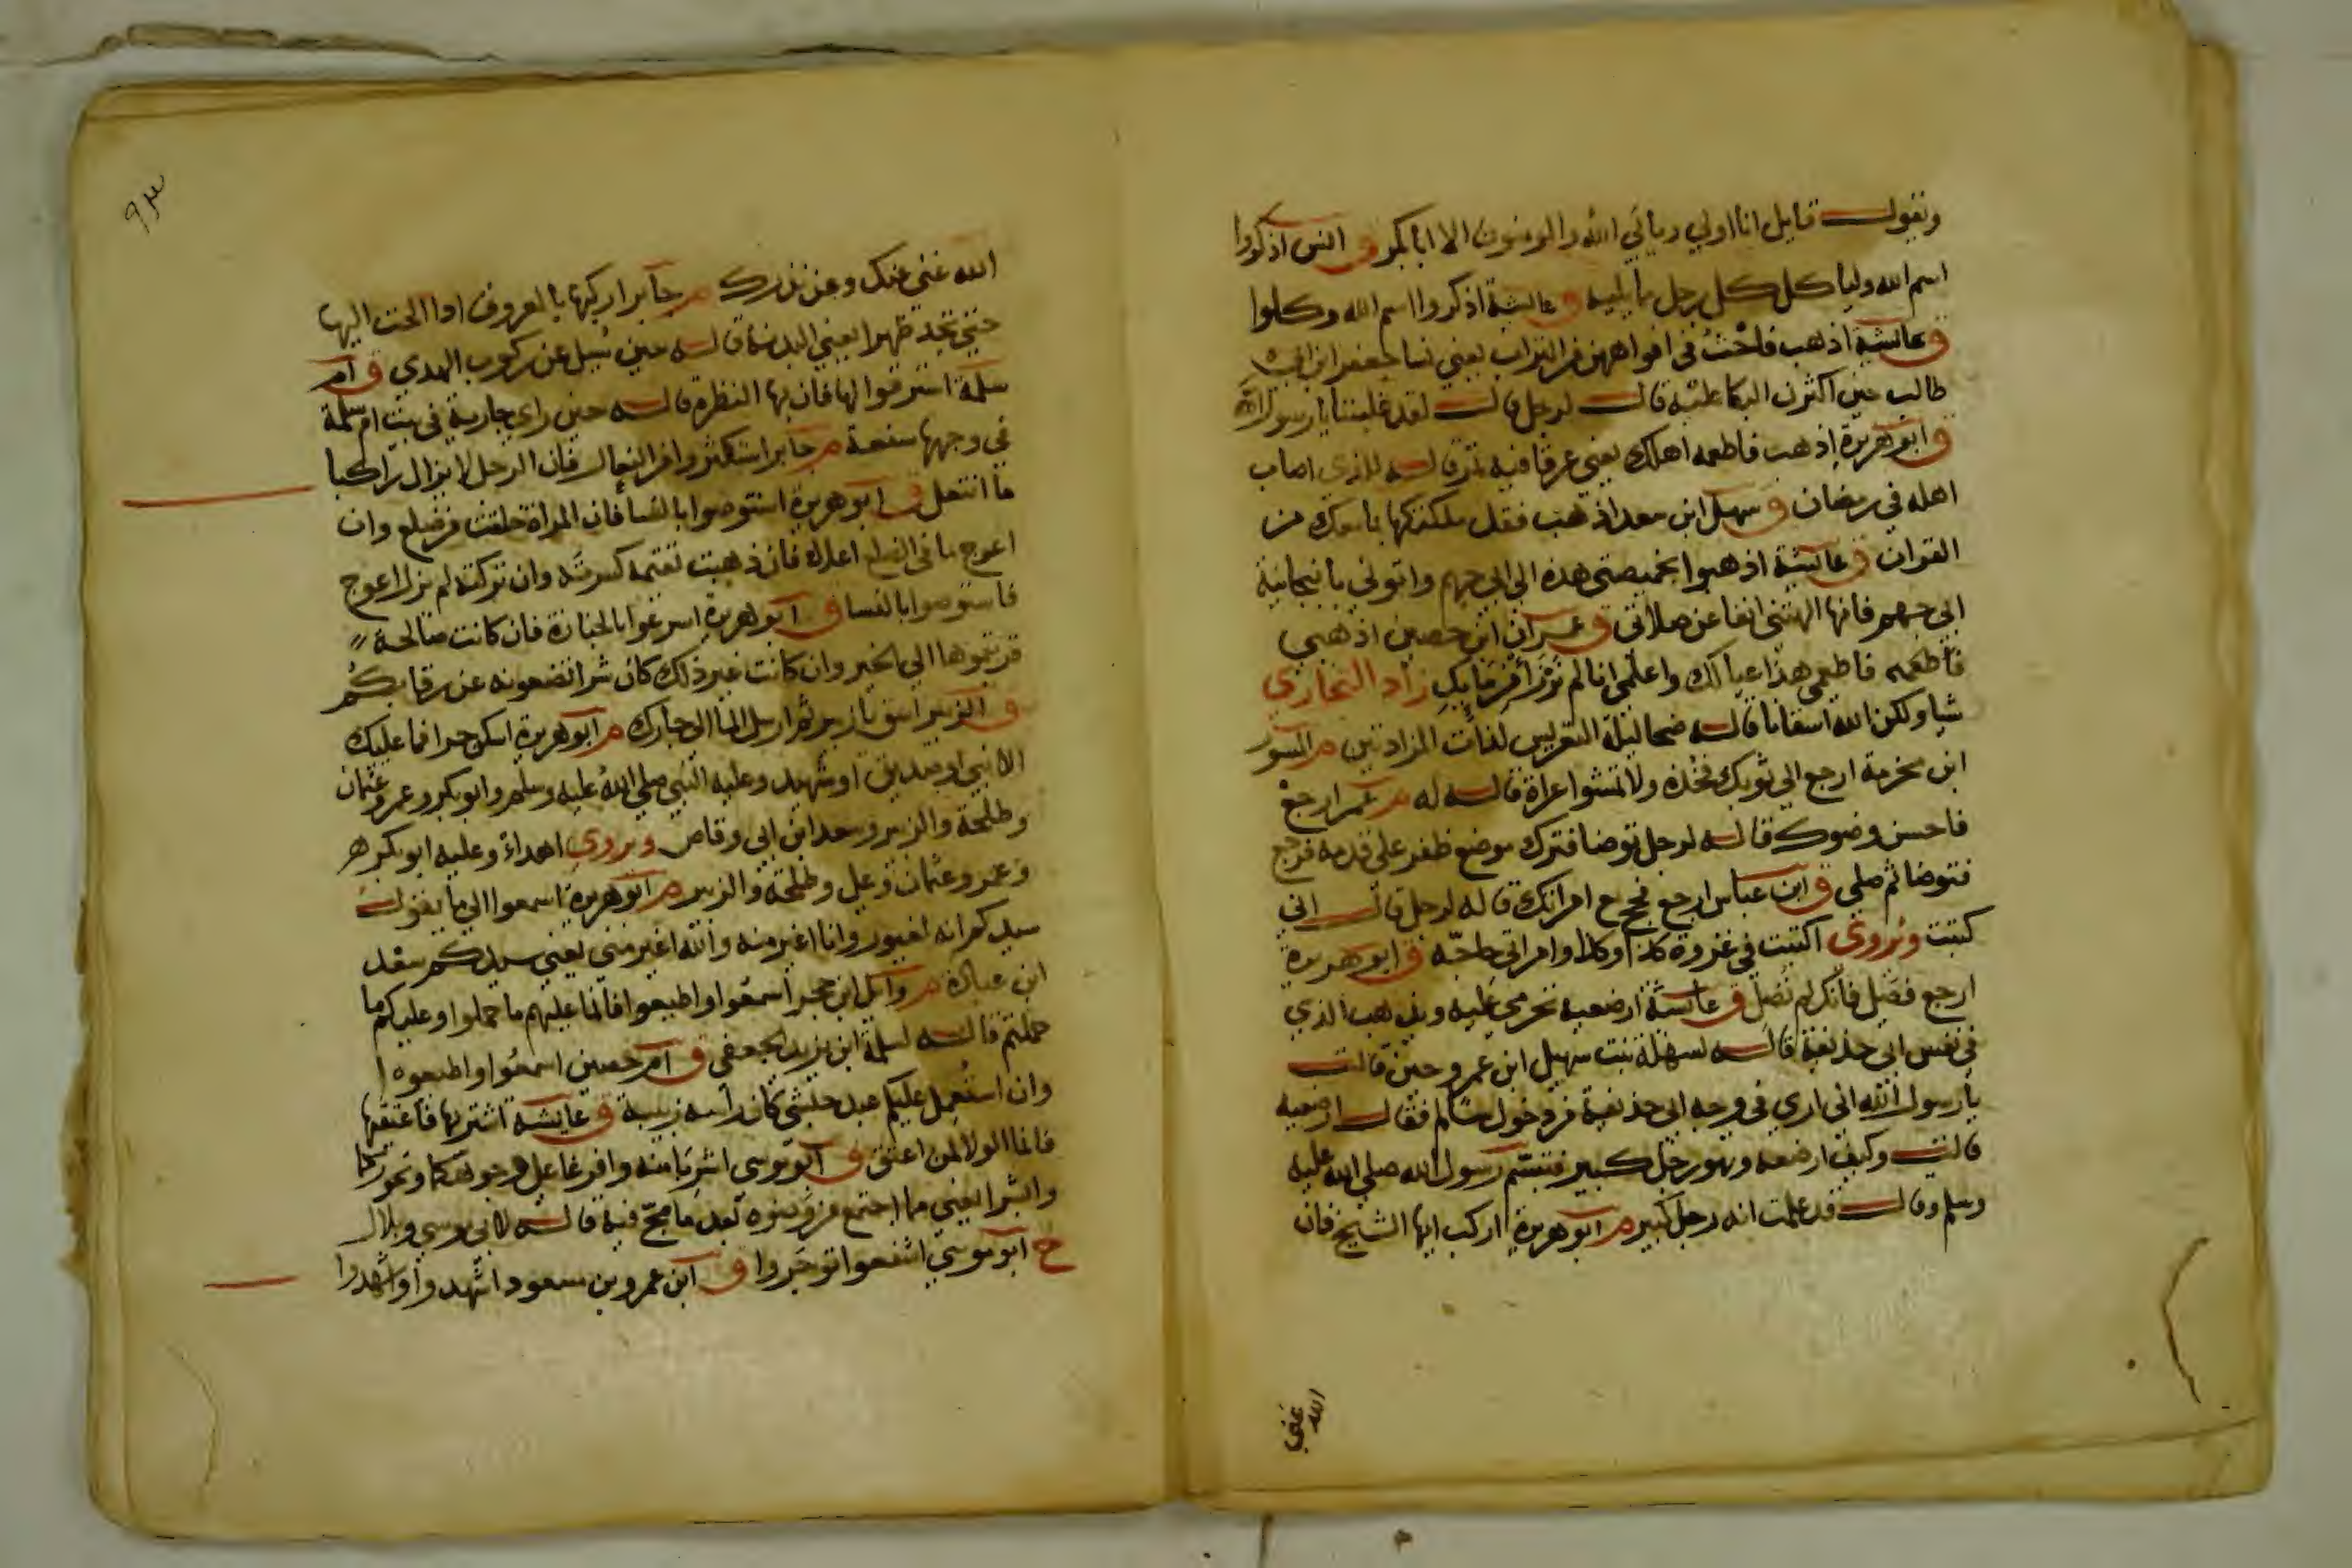 ويقول قايل انا اولي ويأبي الله والمومنون الا ابا بكر ق انس اذكروا
اسم الله ولياكل كل رجل مما يليه ق عائشة اذكروا اسم الله وكلوا
ق عائشة اذهب فاحث في افواههن من التراب يعني نسا جعفر ابن ابي
طالب حين اكثرن البكا عليه قال لرجل قال لقد غلبننا يا رسول الله
ق ابو هريرة اذهب فاطعمه اهلك يعني عرقا فيه تمر قاله للذي اصاب
اهله في رمضان ق سهل ابن سعد اذهب فقد ملكتكها بما معك من
القران ق عائشة اذهبوا بخميصتي هذه الي ابي جهم واتوني بانبجانية
ابي جهم فانها الهتني انفا عن صلاتي ق عمران ابن حصين اذهبي
فاطعمي هذا عيالك واعلمي انا لم نرزأ من مايك زاد البخاري
شيا ولكن الله اسقانا قاله ضحا ليلة التعريس لذات المزادتين م المسور
ابن مخرمة ارجع الي ثوبك فخذه ولا تمشوا عراة قاله له م عمر ارجع
فاحسن وضوك قاله لرجل توضا فترك موضع ظفر علي قدمه فرجع
فتوضا ثم صلي ق ابن عباس ارجع فحج مع امراتك قاله لرجل قال اني
كتبت ويروي اكتتبت في غزوة كذا وكذا وامراتي حاجه ق ابو هريرة
ارجع فصل فانك لم تصل ق عائشة ارضعيه تحرمي عليه ويذهب الذي
في نفس ابي حذيفة قاله لسهلة بنت سهيل ابن عمرو حين قالت
يا رسول الله اني اري في وجه ابي حذيفة من دخول سالم فقال ارضعيه
قالت وكيف ارضعه وهو رجل كبير فتبسم رسول الله صلي الله عليه
وسلم وقال قد علمت انه رجل كبير م ابو هريرة اركب ايها الشيخ فان
الله غني
٩٣
الله غني عنك وعن نذرك م جابر اركبها بالمعروف اذا الجئت اليها
حتي تجد ظهرا يعني البدنة قاله حين سئل عن ركوب الهدي ق ام
سلمة استرقوا لها فان بها النظرة قاله حين راي جارية في بيت ام سلمة
في وجهها سفعة م جابر استكثروا من النعال فان الرجل لا يزال راكبا
ما انتعل ق ابو هريرة استوصوا بالنسا فان المراة خلقت من ضلع وان
اعوج ما في الضلع اعلاه فان ذهبت تقيمه كسرته وان تركته لم يزل اعوج
فاستوصوا بالنسا ق ابو هريرة اسرعوا بالجنازة فان كانت صالحة
قربتموها الي الخير وان كانت غير ذلك كان شرا تضعونه عن رقابكم
ق الزبير اسق يا زبير ثم ارسل الما الي جارك م ابو هريرة اسكن حرا فما عليك
الا نبي او صديق او شهيد وعليه النبي صلي الله عليه وسلم وابو بكر وعمر وعثمان
وطلحة والزبير وسعد ابن ابي وقاص ويروي اهدا وعليه ابو بكر
وعمر وعثمان وعلي وطلحة والزبير م ابو هريرة اسمعوا الي ما يقول
سيدكم انه لغيور وانا اغير منه والله اغير مني يعني سيدكم سعد
ابن عبادة م وائل ابن حجر اسمعوا واطيعوا فانما عليهم ما حملوا وعليكم ما
حملتم قاله لسلمة ابن يزيد الجعفي ق ام حصين اسمعوا واطيعوا
وان استعمل عليكم عبد حبشي كان راسه زبيبة ق عايشة اشتريها فاعتقيها
فانما الولا لمن اعتق ق ابو موسي اشربا منه وافرغا علي وجوهكما ونحوركما
وابشرا يعني مما اجتمع من وضوه بعد ما مج فيه قاله لابي موسي وبلال
خ ابو موسي اشفعوا توجروا ق ابن عمرو بن مسعود اشهدوا اشهدوا